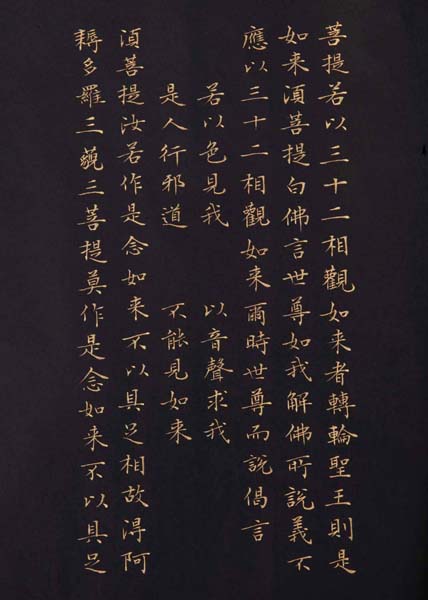 菩提若以三十二相觀如来者轉輪聖王則是
如来湏菩提白佛言世尊如我解佛所說義不
應以三十二相觀如来爾時世尊而說偈言
若以色見我 以音聲求我
是人行邪道 不能見如来
湏菩提汝若作是念如来不以具足相故得阿
耨多羅三藐三菩提莫作是念如来不以具足